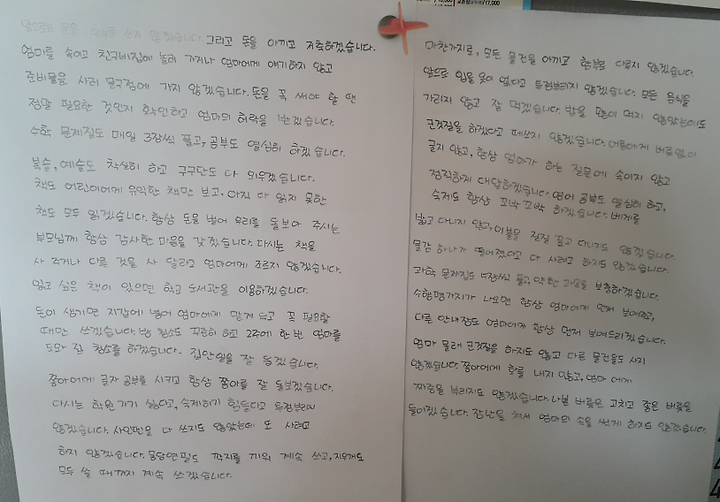 앞으로는 돈을 쓰지 않겠습니다. 그리고 돈을 아끼고 저축하겠습니다.
엄마를 속이고 친구네집에 놀러 가거나 엄마에게 얘기하지 않고
준비물을 사러 문구점에 가지 않겠습니다. 돈을 꼭 써야 할 땐
정말 필요한 것인지 확인하고 엄마의 허락을 받겠습니다.
수학 문제집도 매일 3장씩 풀고, 공부도 열심히 하겠습니다.
복습, 예습도 착실히 하고 구구단도 다 외우겠습니다.
책도 어린이에게 유익한 책만 보고, 아직 다 읽지 못한
책도 모두 읽겠습니다. 항상 돈을 벌어 우리를 돌보아 주시는
부모님께 항상 감사한 마음을 갖겠습니다. 다시는 책을
사 주거나 다른 것을 사 달라고 엄마에게 조르지 않겠습니다.
읽고 싶은 책이 있으면 학교 도서관을 이용하겠습니다.
돈이 생기면 지갑에 넣어 엄마에게 맡겨 두고 꼭 필요할
때만 쓰겠습니다. 방 청소도 꾸준히 하고 2주에 한 번 엄마를
도와 집 청소를 하겠습니다. 집안일을 잘 돕겠습니다.
쫑아에게 글자 공부를 시키고 항상 쫑아를 잘 돌보겠습니다.
다시는 학원 가기 싫다고, 숙제하기 힘들다고 투정부리지
않겠습니다. 사인펜을 다 쓰지도 않았는데 또 사려고
하지 않겠습니다. 몽당연필도 깍지를 끼워 계속 쓰고, 지우개도
모두 쓸 때까지 계속 쓰겠습니다.
마찬가지로, 모든 물건을 아끼고 함부로 다루지 않겠습니다.
앞으로 입을 옷이 없다고 투정부리지 않겠습니다. 모든 음식을
가리지 않고 잘 먹겠습니다. 밥을 먹지 않았는데도
군것질을 하겠다고 떼쓰지 않겠습니다. 어른에게 버릇없이
굴지 않고, 항상 엄마가 하는 질문에 속이지 않고
정직하게 대답하겠습니다. 영어 공부도 열심히 하고,
숙제도 항상 꼬박꼬박 하겠습니다. 베개를
밟고 다니지 않고, 이불을 질질 끌고 다니지도 않겠습니다.
물감 하나가 떨어졌다고 다 사려고 하지도 않겠습니다.
과학 문제집도 풀고, 약한 과목을 보충하겠습니다.
수행평가지가 나오면 항상 엄마에게 먼저 보여주고,
다른 안내장도 엄마에게 항상 먼저 보여드리겠습니다.
엄마 몰래 군것질을 하지도 않고 다른 물건을도 사지
않겠습니다. 쫑아에게 화를 내지 않고, 엄마에게
짜증을 부리지도 않겠습니다. 나쁜 버릇은 고치고 좋은 버릇을
들이겠습니다. 장난을 쳐서 엄마의 속을 썩게 하지도 않겠습니다.